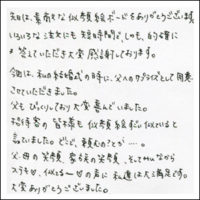 先日は、素敵な似顔絵ボードをありがとうございます
いろいろな注文にも短時間で、しかも、的確に
答えていただき大変感謝しております。
今回は、私の結婚式の時に、父へのサプライズとして用意
させていただきました。
父もびっくりしており大変喜んでいました。
招待客の皆様も似顔絵すごい似ていると
言っていました。どこで頼んだのとか…。
父、母の笑顔、家族の笑顔、そして
似てる の声に私達は大満足です。
大変ありがとうございました。